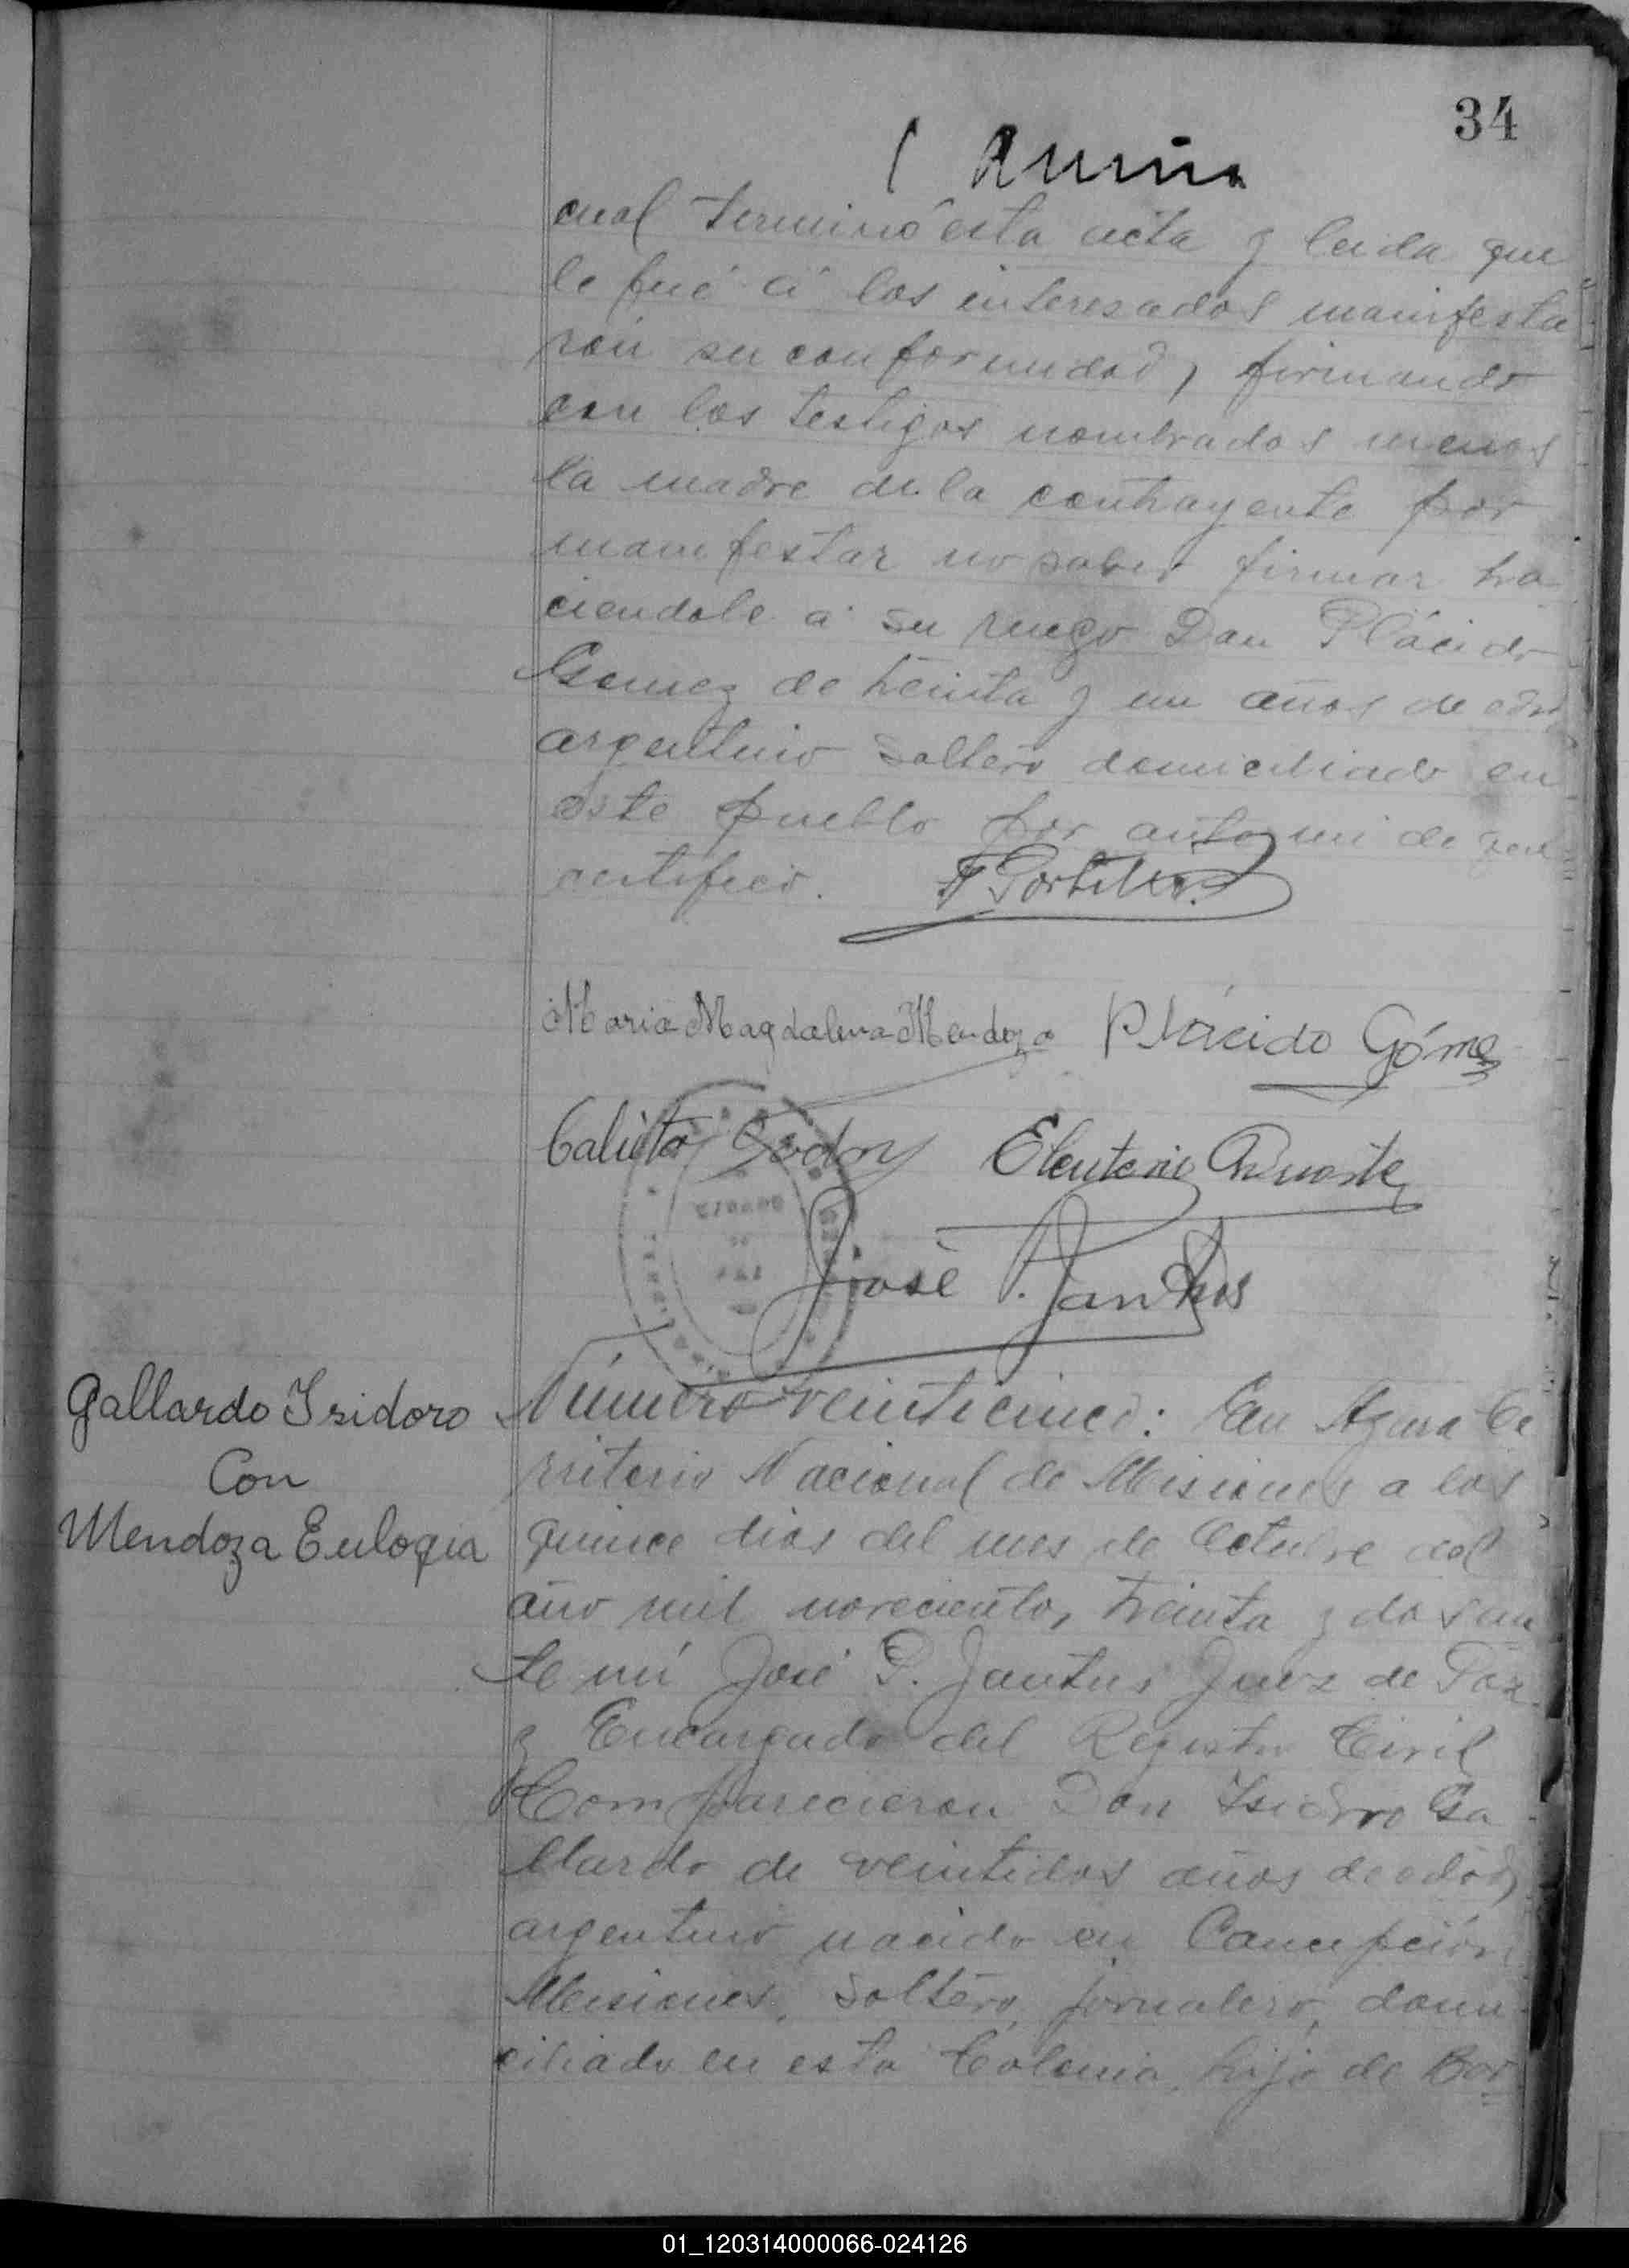 34
cual terminó esta acta y leida que
le fué á los interesados manifesta
ron su conformidad, firmando
con los testigos nombrados menos
la madre de la contrayente por
manifestar no saber firmar ha
ciendole a su ruego Don Plácido
Gomez de treinta y un años de edad
argentino soltero domiciliado en
este pueblo por ante mi de que
certifico. Portillo
Maria Magdalena Mendoza Plácido Gómez
Calista Godoy Eleuterio Duarte
José P. Jantus
Gallardo Isidoro
Con
Mendoza Eulogia
Número veinticinco: En Azara Te
rritorio Nacional de Misiones a los
quince dias del mes de Octubre del
año mil novecientos treinta y dos an
te mi José P. Jantus Juez de Paz
y Encargado del Registro Civil
Comparecieron Don Isidoro Ga
llardo de veintidos años de edad,
argentino nacido en Concepción
Misiones, soltero, jornalero, domi
ciliado en esta Colonia, hijo de Bor
01_120314000066-024126